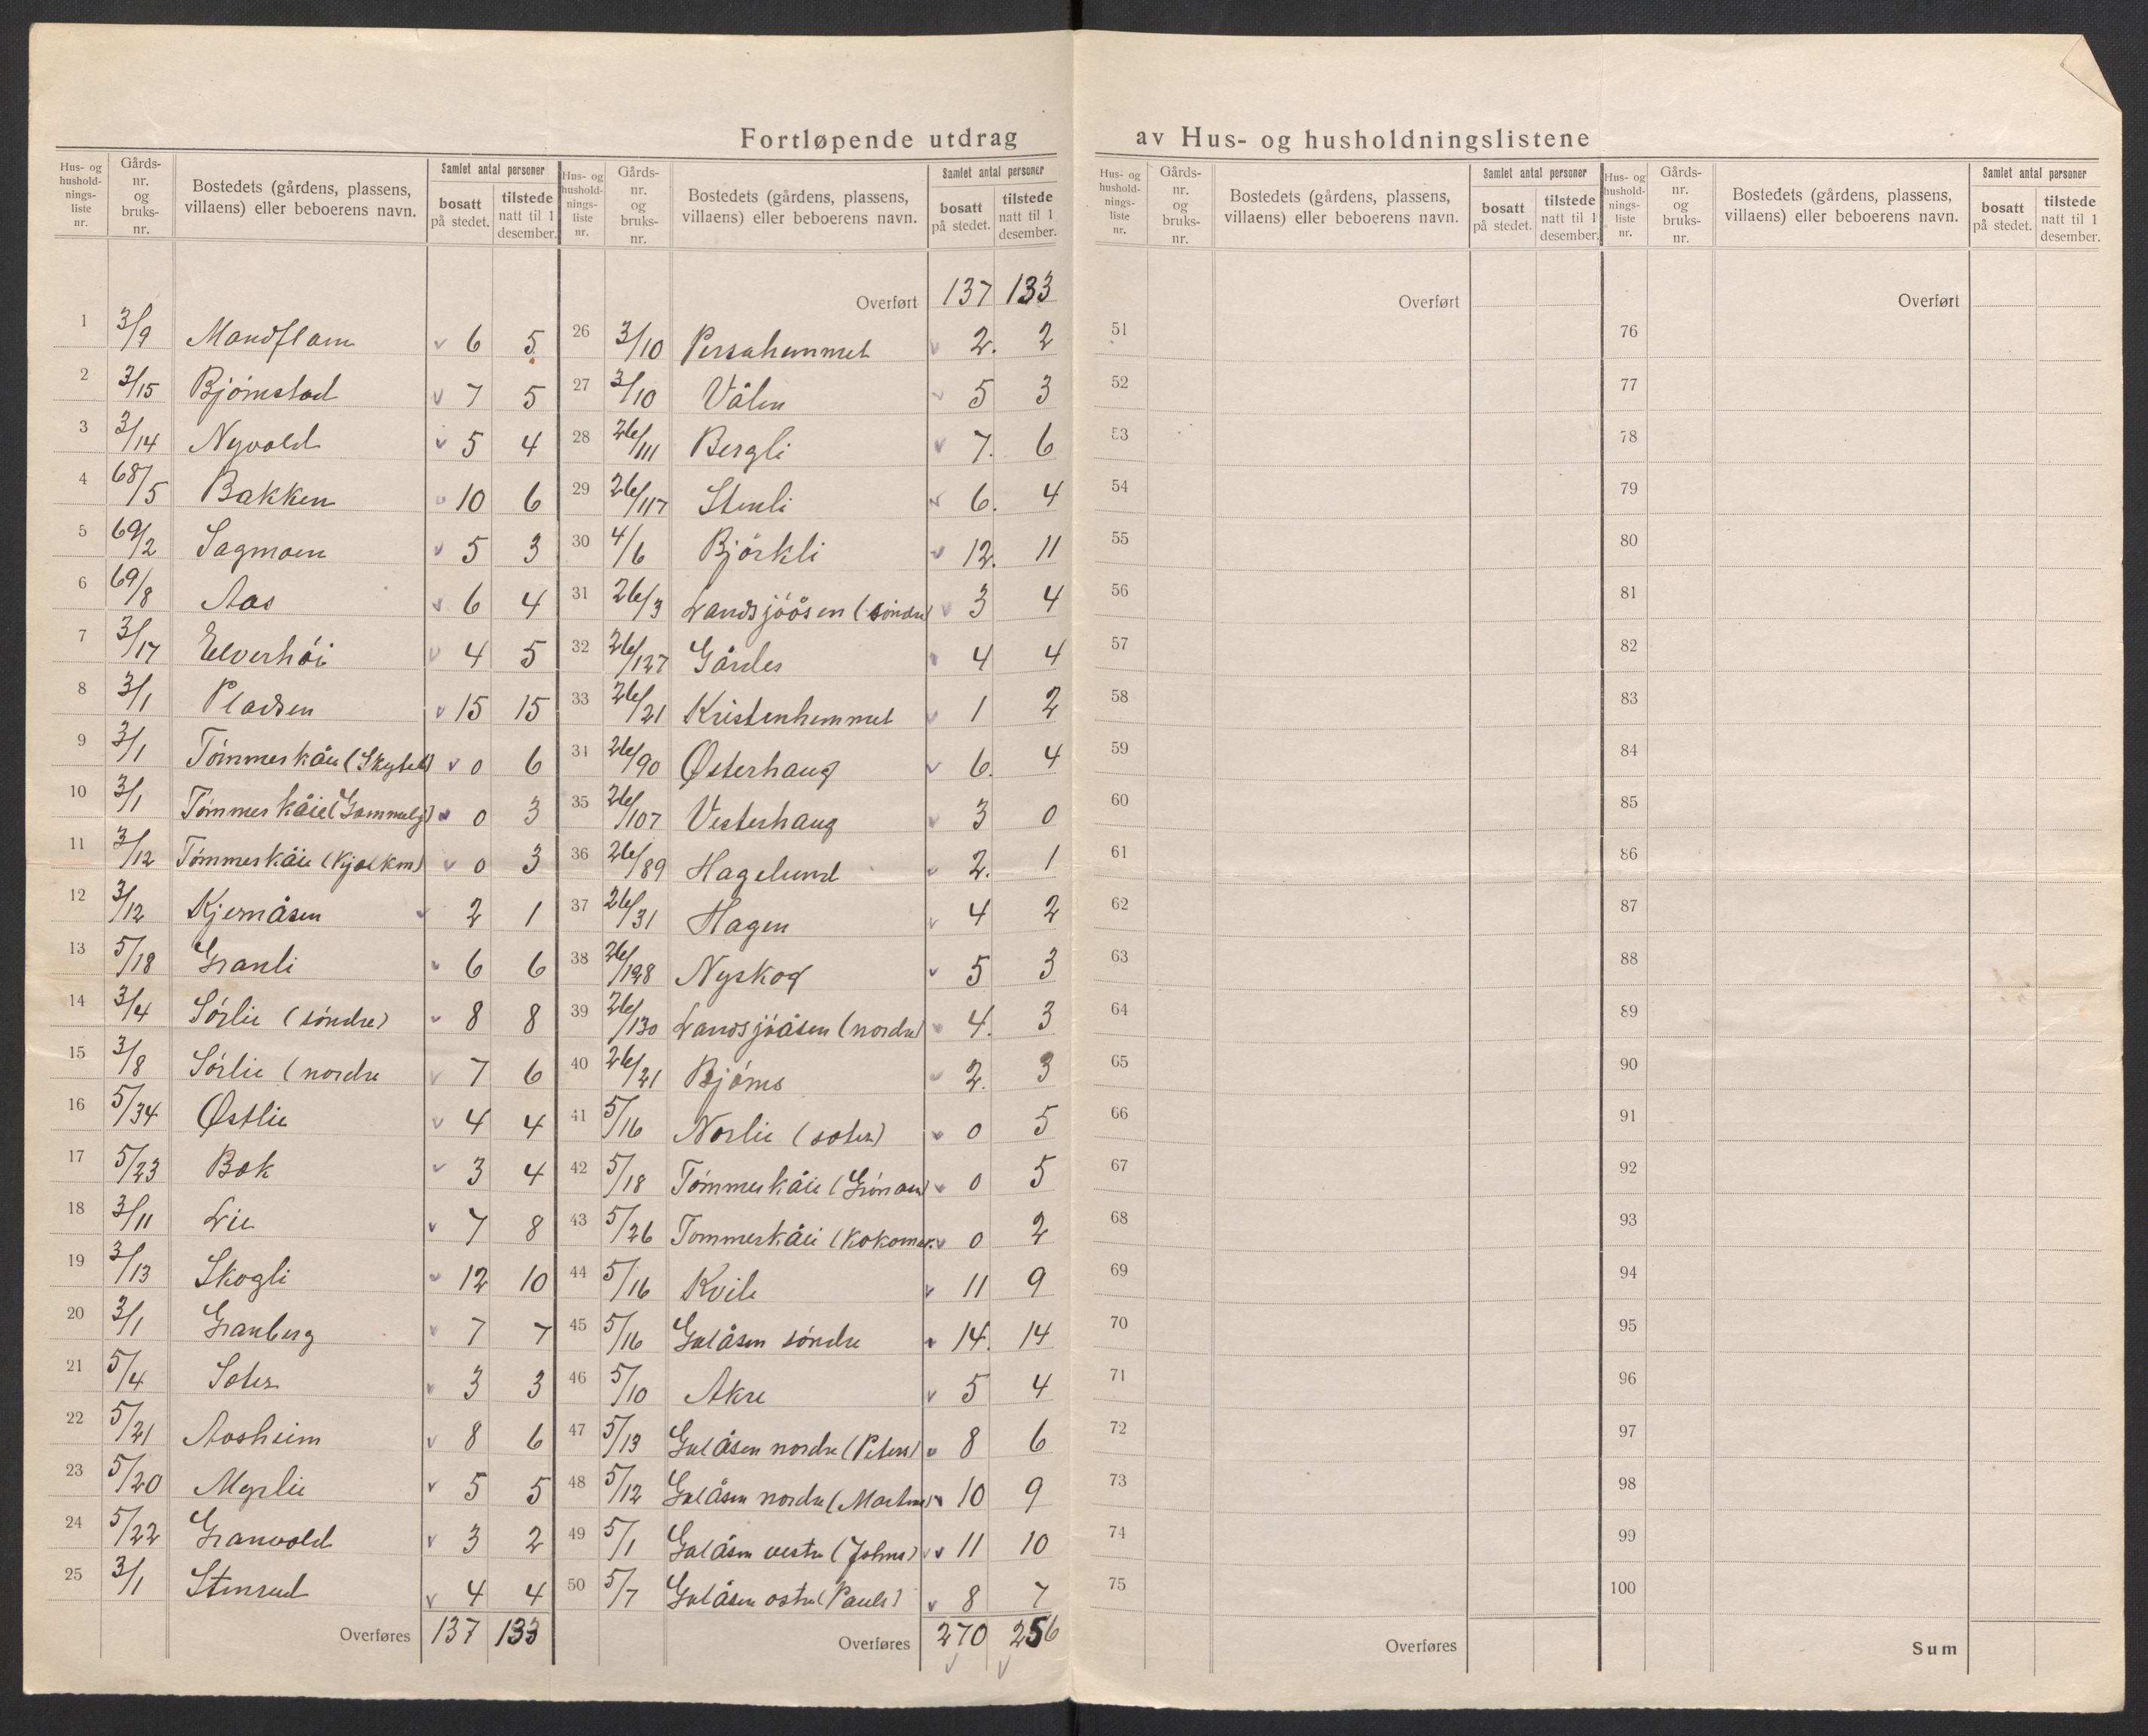 Fortløpende utdrag av Hus- og husholdningslistene
Hus- og husholdningsliste nr. | Gårdsnr. og bruksnr. | Bostedets (gårdens, plassens, villaens) eller beboerens navn. | Samlet antal personer bosatt på stedet. | tilstede natt til 1 desember.
1 3/9 Mandflam v 6 5
2 3/15 Bjørnstad v 7 5
3 3/14 Nyvold v 5 4
4 68/5 Bakken v 10 6
5 69/2 Sagmoen v 5 3
6 69/8 Aas v 6 4
7 3/17 Elverhói v 4 5
8 3/1 Pladsen v 15 15
9 3/1 Tómmerkåie (Skytebl) v 0 6
10 3/1 Tómmerkåie (Gammelg) v 0 3
11 3/12 Tómmerkåie (Kjølkm) v 0 3
12 3/12 Kjernåsen v 2 1
13 5/18 Granli v 6 6
14 3/4 Sórlie (sóndre) v 8 8
15 3/8 Sórlie (nordre v 7 6
16 5/34 Østlie v 4 4
17 5/23 Bæk v 3 4
18 3/11 Lie v 7 8
19 3/13 Skogli v 12 10
20 3/1 Granberg v 7 7
21 5/4 Sæter v 3 3
22 5/21 Aasheim v 8 6
23 5/20 Myrlie v 5 5
24 5/22 Granvold v 3 2
25 3/1 Stenrud v 4 4
Overføres 137 133
Hus- og husholdningsliste nr. | Gårdsnr. og bruksnr. | Bostedets (gårdens, plassens, villaens) eller beboerens navn. | Samlet antal personer bosatt på stedet. | tilstede natt til 1 desember.
Overført 137 133
26 3/10 Persahemmet v 2. 2
27 3/10 Vålen v 5 3
28 26/111 Bergli v 7. 6
29 26/117 Stenli v 6. 4
30 4/6 Bjórkli v 12. 11
31 26/3 Landsjóåsen (sóndre) v 3 4
32 26/127 Gårder v 4 4
33 26/21 Kristenhemmet v 1 2
34 26/90 Østerhaug v 6. 4
35 26/107 Vesterhaug v 3 0
36 26/89 Hagelund v 2. 1
37 26/31 Hagen v 4 2
38 26/128 Nyskog v 5 3
39 26/130 Landsjóåsen (nordre) v 4. 3
40 26/21 Bjórns v 2. 3
41 5/16 Norlie (sæter) v 0 5
42 5/18 Tómmerkåie (Grónaen) v 0 5
43 5/26 Tommerkåie (Kokomer. v 0 2
44 5/16 Kvile v 11 9
45 5/16 Galåsen sóndre v 14. 14
46 5/10 Akre v 5 4
47 5/13 Galåsen nordre (Peters) v 8 6
48 5/12 Galåsen nordre (Martins) v 10 9
49 5/1 Galåsen vestre (Johns) v v 11 10
50 5/7 Galåsen østre (Pauls) v 8 7
Overføres 270 256
v v
Hus- og husholdningsliste nr. | Gårdsnr. og bruksnr. | Bostedets (gårdens, plassens, villaens) eller beboerens navn. | Samlet antal personer bosatt på stedet. | tilstede natt til 1 desember.
Overført
51
52
53
54
55
56
57
58
59
60
61
62
63
64
65
66
67
68
69
70
71
72
73
74
75
Overføres
Hus- og husholdningsliste nr. | Gårdsnr. og bruksnr. | Bostedets (gårdens, plassens, villaens) eller beboerens navn. | Samlet antal personer bosatt på stedet. | tilstede natt til 1 desember.
Overført
76
77
78
79
80
81
82
83
84
85
86
87
88
89
90
91
92
93
94
95
96
97
98
99
100
Sum